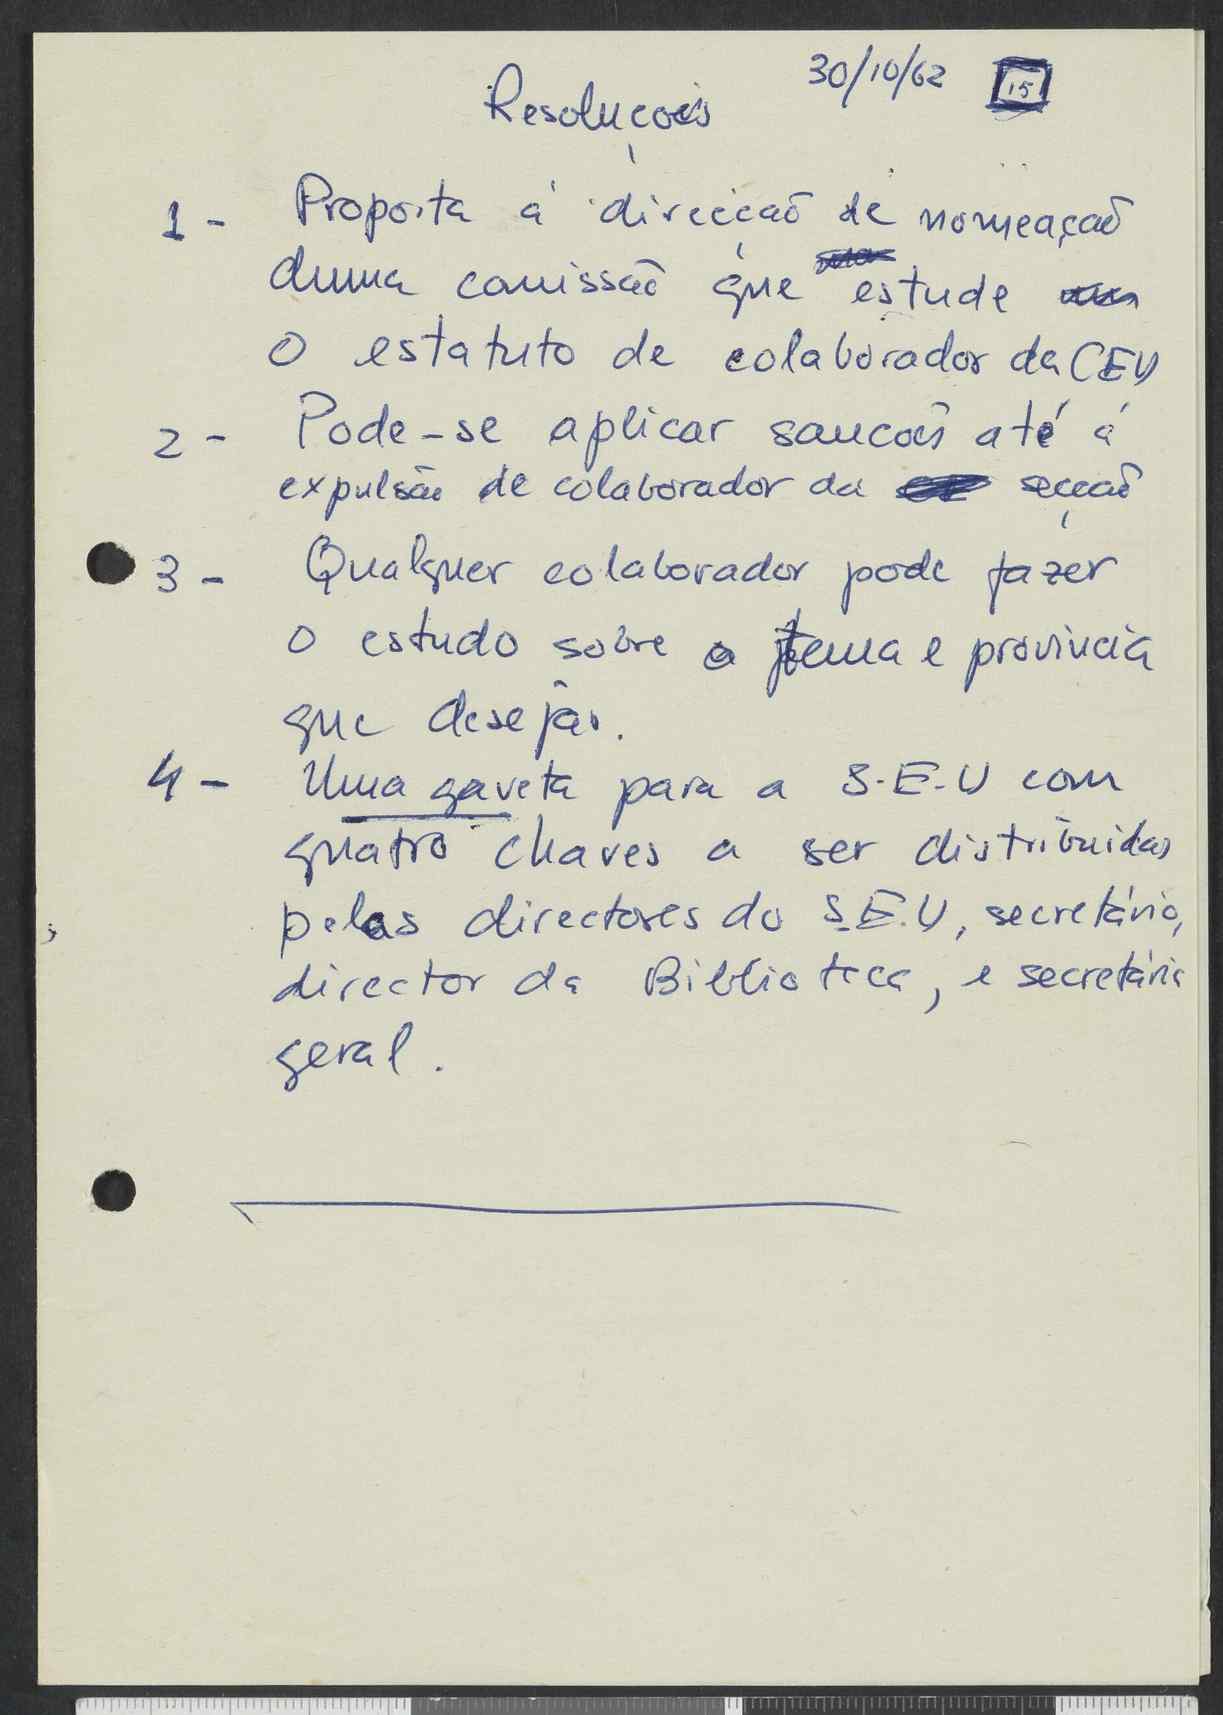 30/10/62 15
Resoluçoẽs
1 - Proposta á direcçaõ de nomeaçaõ
duma comissaõ que estude
o estatuto de colaborador da CEU
2 - Pode-se aplicar sancoẽs até á
expulsão de colaborador da secçaõ
3 - Qualquer colaborador pode fazer
o estudo sôbre o tema e provincia
que desejar.
4 - Uma gaveta para a S.E.U com
quatro chaves a ser distribuidas
pelos directores do S.E.U, secretário,
director da Biblioteca, e secretária
geral.